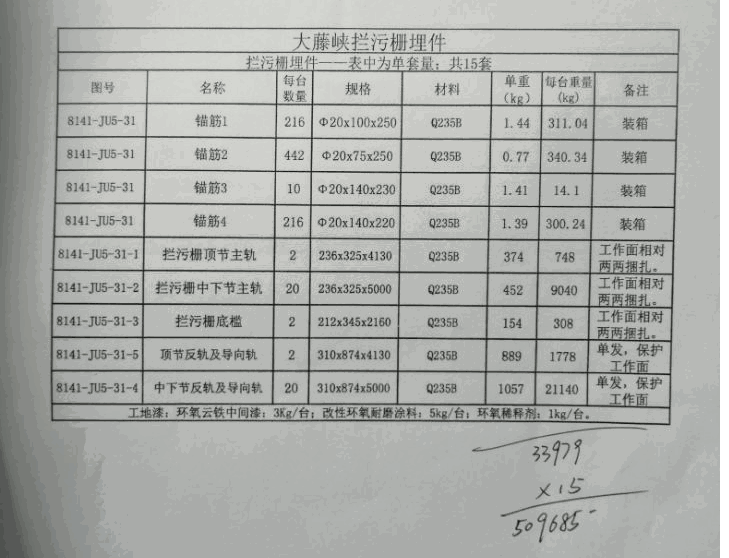 大藤峡拦污栅埋件
拦污栅埋件——表中为单套量；共15套
图号 名称 每台数量 规格 材料 单重（kg） 每台重量(kg) 备注
8141-JU5-31 锚筋1 216 Φ20x100x250 Q235B 1.44 311.04 装箱
8141-JU5-31 锚筋2 442 Φ20x75x250 Q235B 0.77 340.34 装箱
8141-JU5-31 锚筋3 10 Φ20x140x230 Q235B 1.41 14.1 装箱
8141-JU5-31 锚筋4 216 Φ20x140x220 Q235B 1.39 300.24 装箱
8141-JU5-31-1 拦污栅顶节主轨 2 236x325x4130 Q235B 374 748 工作面相对两两捆扎。
8141-JU5-31-2 拦污栅中下节主轨 20 236x325x5000 Q235B 452 9040 工作面相对两两捆扎。
8141-JU5-31-3 拦污栅底槛 2 212x345x2160 Q235B 154 308 工作面相对两两捆扎。
8141-JU5-31-5 顶节反轨及导向轨 2 310x874x4130 Q235B 889 1778 单发，保护工作面
8141-JU5-31-4 中下节反轨及导向轨 20 310x874x5000 Q235B 1057 21140 单发，保护工作面
工地漆：环氧云铁中间漆：3Kg/台；改性环氧耐磨涂料：5kg/台；环氧稀释剂：1kg/台。
33979
x15
509685